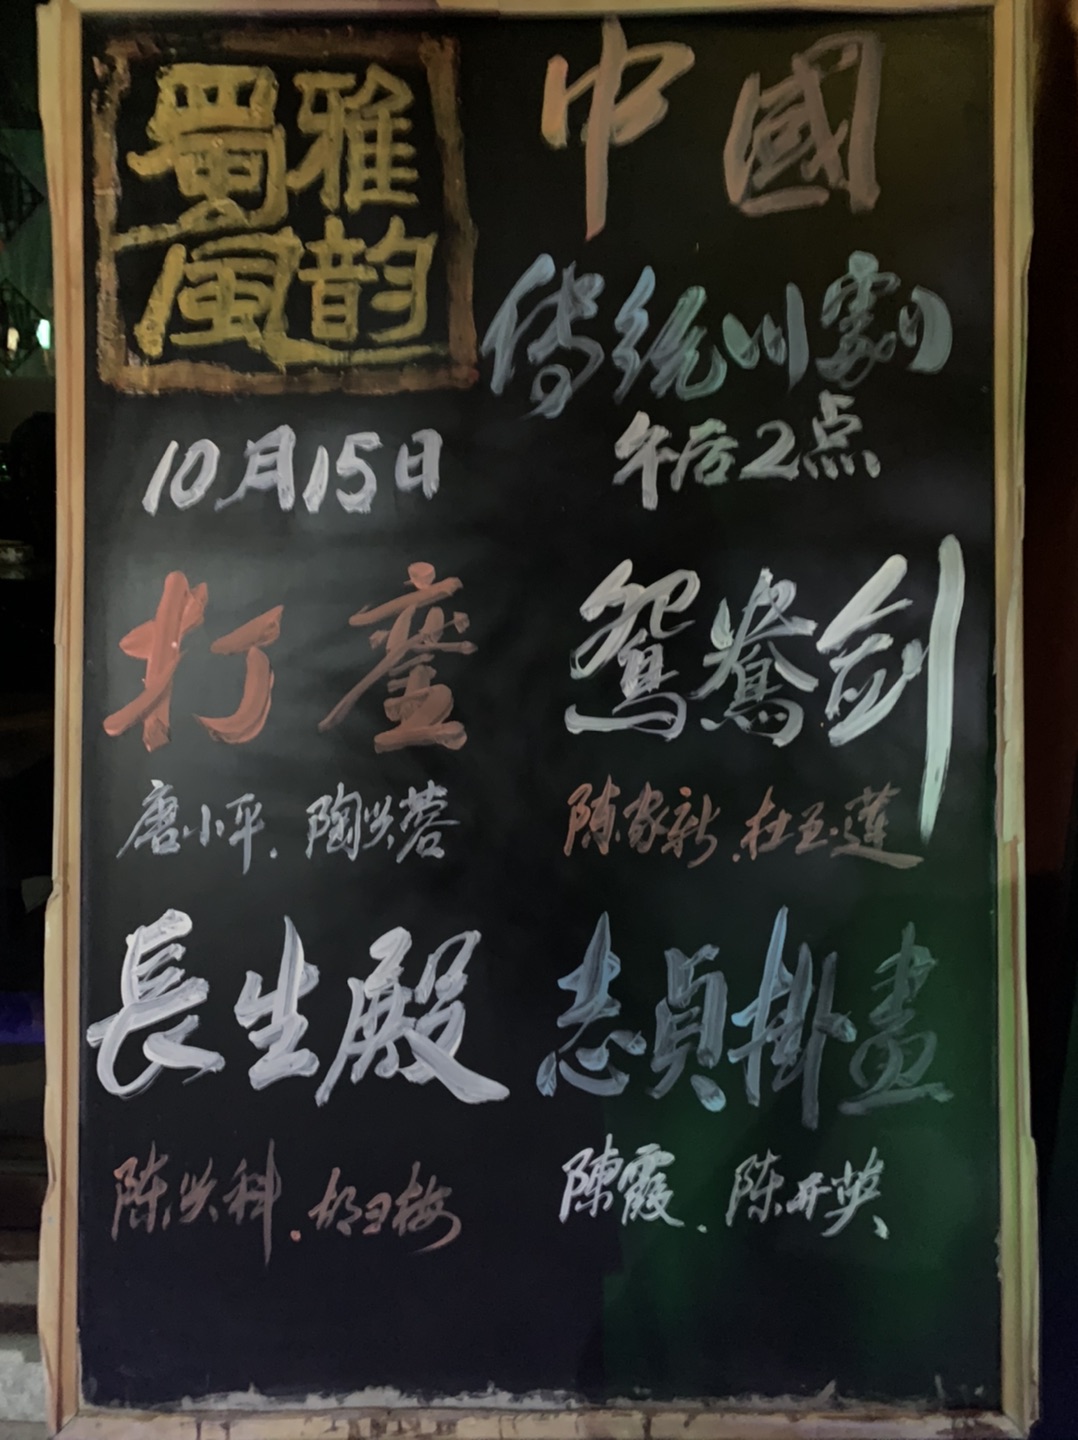 蜀雅
風韵
中國
傳統川劇
10月15日
午后2点
打鑾
鸳鸯剑
唐小平．陶兴蓉
陈家新．杜玉莲
長生殿
志貞掛畫
陈兴科．胡玉梅
陳霞．陈开英